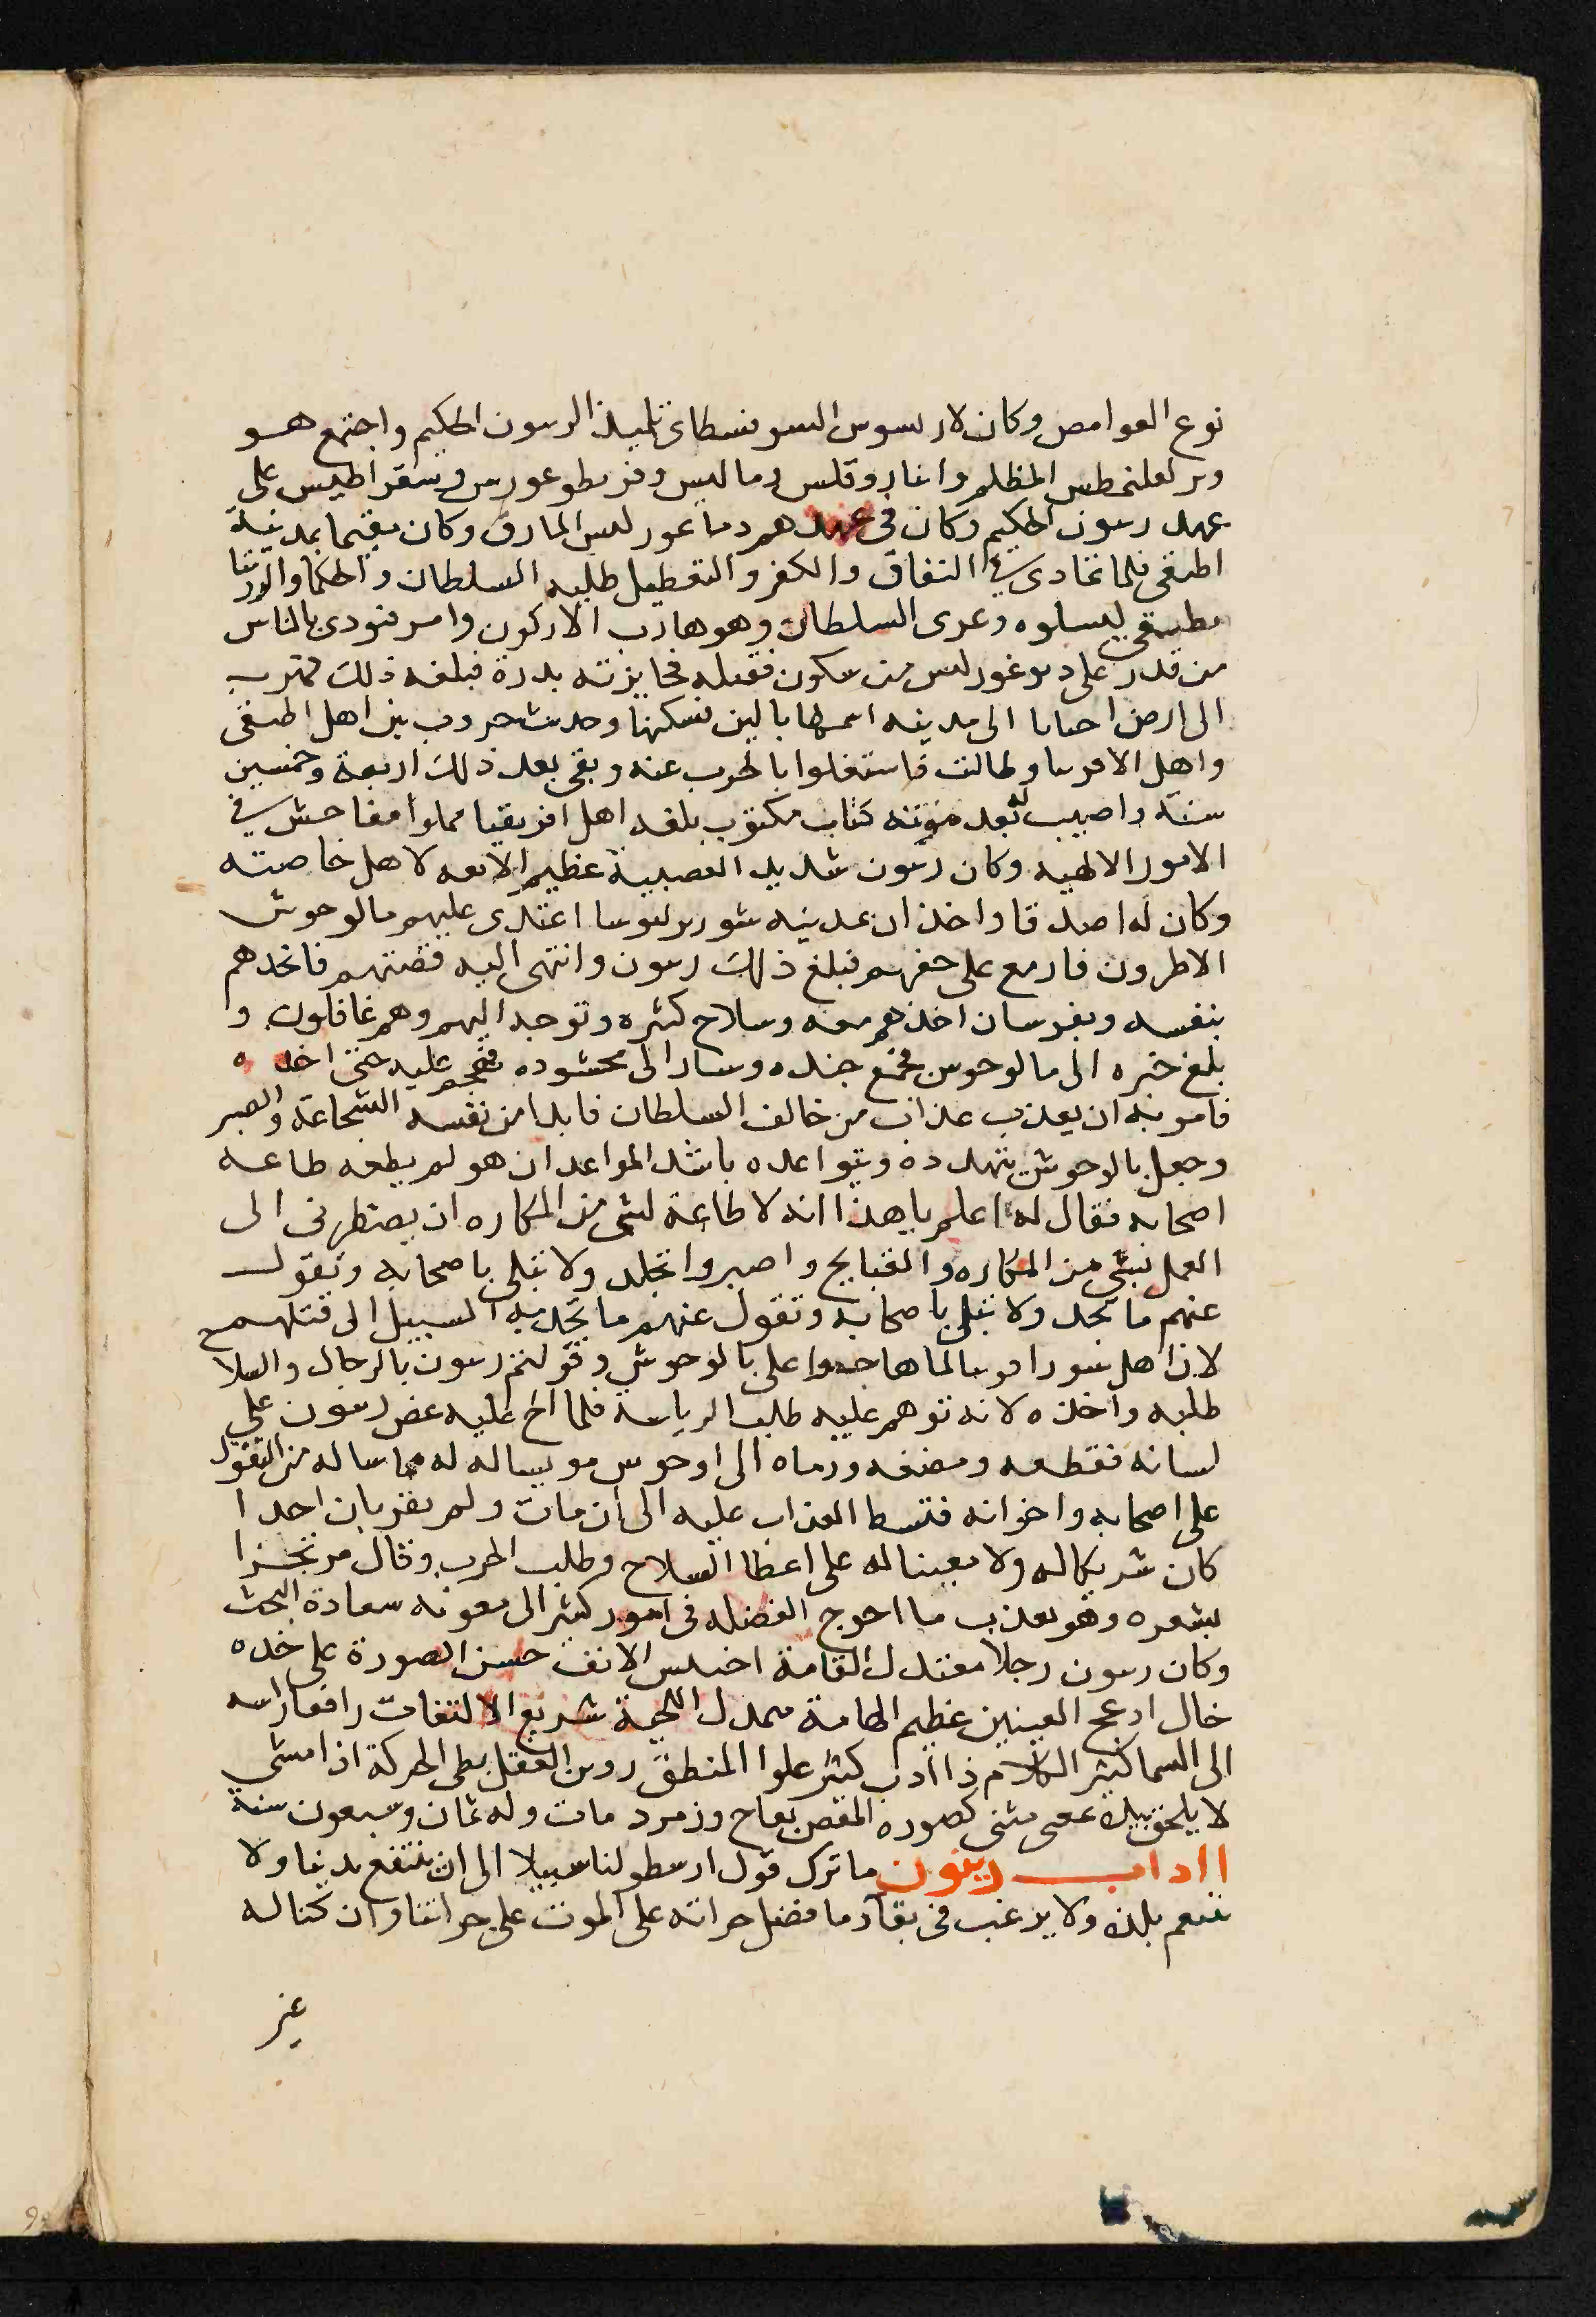 نوع العوامص وكان لاريسوس السوفسطاى تلميذ الرسون الحكيم واجتمع هو
المظلم وانباروقلس وماليس وفريطوعورس وسقراطيس على
عهد رسون الحكيم وكان فى عهدهم دىاعورليس المارق وكان مقيما بمدينة
اطيقى فلما تمادى في النفاق والكفر والتعطيل طلبه السلطان والحكما
ليسلوه وعرى السلطان وهو هارب الاركون وامر فنودى بالناس
من قدر على دىوغورلس من سكون فقتله فجايزته بدرة فبلغه ذلك فهرب
الى ارض احىاىا الى مدينه اسمها ىالين فسكنها وحدىت حروب بين اهل اطيقى
واهل الافرىىا وطالت فاستغلوا بالحرب عنه وبقى بعد ذلك اربعة وخمسين
سنة واصيب له بعد موته كتاب مكتوب بلغه اهل افريقيا مملوا مفاحش في
الامور الالهيه وكان رىنون شديد العصبية عظيم الانعه لاهل خاصته
وكان له اصدقا واخذان بمدينه شوربرلىوسا اعتدى عليهم مالوحوش
الاطرون فازمع على حفرهم فبلغ ذلك رىىون وانتهى اليه قصتهم فانجدهم
بنفسه وبفرسان اخذهم معه وسلاح كثره وتوجه اليهم وهم غافلون و
بلغ خبره الى مالوحوس فجمع جنده وسار الى محشوده فهجم عليه حتى اخذه
فامر به ان يعذب عذاب من خالف السلطان فابدا من نفسه الشجاعة والصبر
وجعل بالوحوش يتهدده ويتواعده باشد المواعد ان هو لم يطعه طاعه
اصحابه فقال له اعلم يا هذا انه لا طاعة لشى من المكاره ان يضطرنى الى
العمل بشى من المكاره والقبايح واصبر واتجلد ولا تبلى باصحابه وتقول
عنهم ما تجد ولا تبلى باصحابه وتقول عنهم ما تجد به السبيل الى قتلهم
لان اهل سورا لما على بالوحوش وقولنم رسون بالرجال والسلا
طلبه واخذه لانه توهم عليه طلب الرياسة فلما الح عليه عض رىىون على
لسانه فقطعه ومضغه ورماه الى اوحوس موىىساله له مما ساله من القول
على اصحابه واخوانه فتبسط العذاب عليه الى ان مات ولم يقر بان احدا
كان شريكا له ولا معينا له على اعطا السلاح وطلب الحرب وقال مرتجزا
بشعره وهو يعذب ما احوج الفضله فى امور كثير الى معونه سعادة البحث
وكان رىىون رجلا معتدل القامة اخنس الانف حسن الصورة على خده
خال ادعج العينين عظيم الهامة معدل اللحية سريع الالتفات رافعا راسه
الى السما كثير الكلام ذا ادب كثير علوا المنطق العقل بطى الحركة اذا مشى
لا يلحق بيده عصى مثنى كصوره المقص بعاج وزمرد مات وله ثمان وسبعون سنة
ااداب رينون ما ترك قول ارسطو لنا سبيلا الى ان ننتفع بدنيا ولا
نتنعم بلذه ولا يرغب فى بقآ وما فضل جراته على الموت على جراتنا وان كنا له
عن